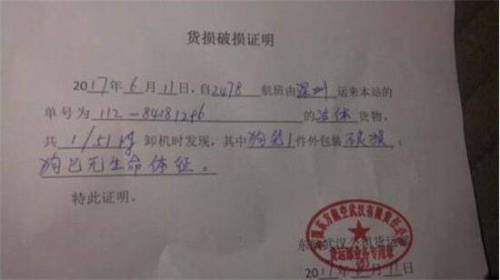 货损破损证明
2017年6月11日，自2478航班由深圳运来本站的
单号为112-84181296的活体货物，
共1/51kg卸机时发现，其中狗笼1件外包装破损：
狗已无生命体征。
特此证明。
东方航空武汉有限责任公司
2017 11日